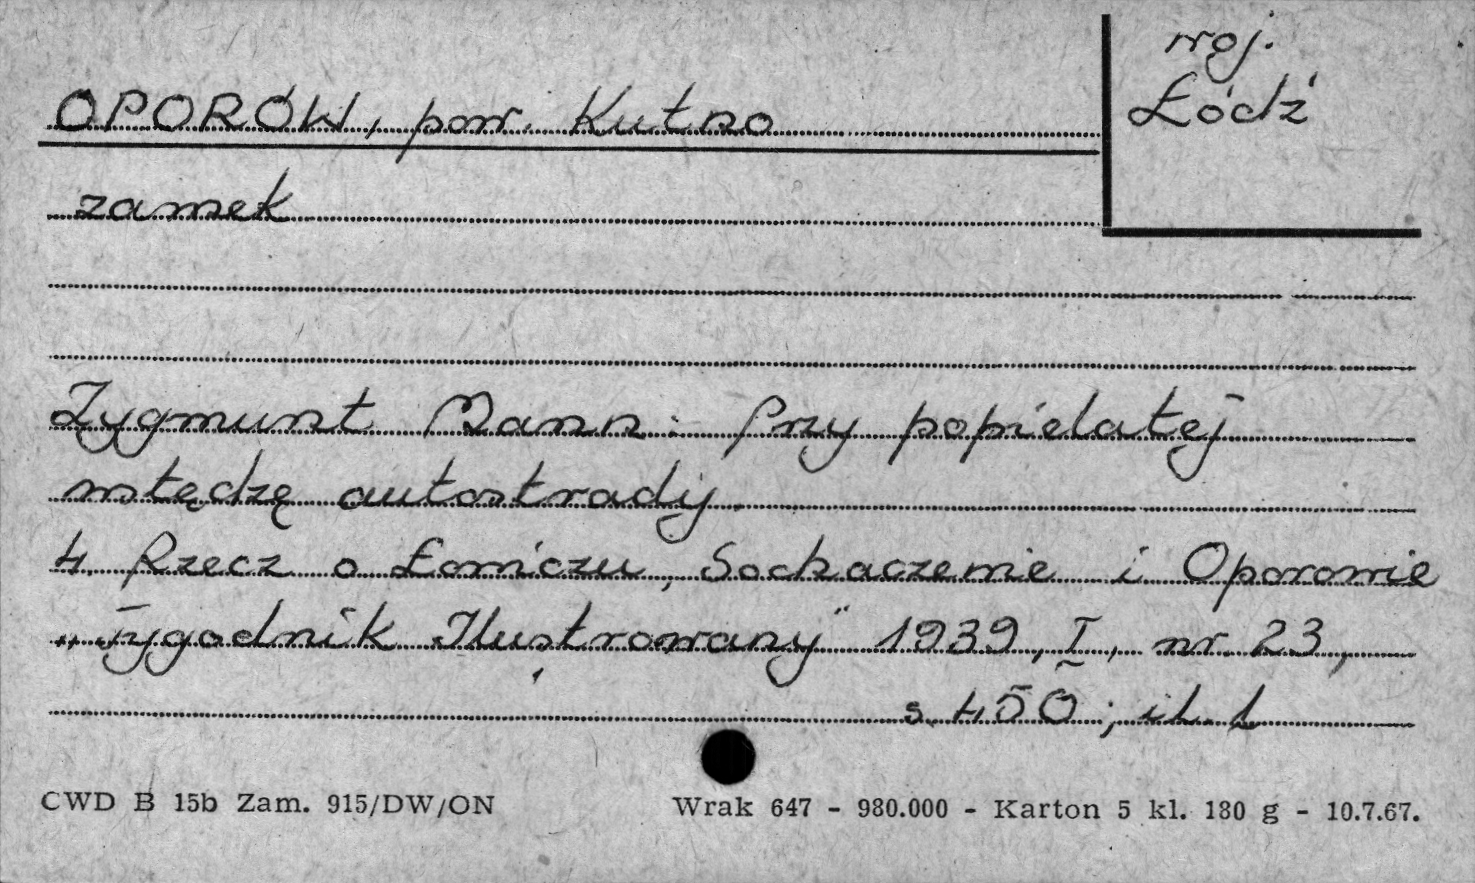 woj.
Łódź
OPORÓW, pow. Kutno
zamek
Zygmunt Mann: Przy popielatej
wstędze autostrady
4. Rzecz o Łowiczu, Sochaczewie i Oporowie
"Tygodnik Ilustrowany" 1939, I, nr 23,
s. 450; il. 1
CWD B 15b Zam. 915/DW/ON Wrak 647 - 980.000 - Karton 5 kl. 180 g - 10.7.67.